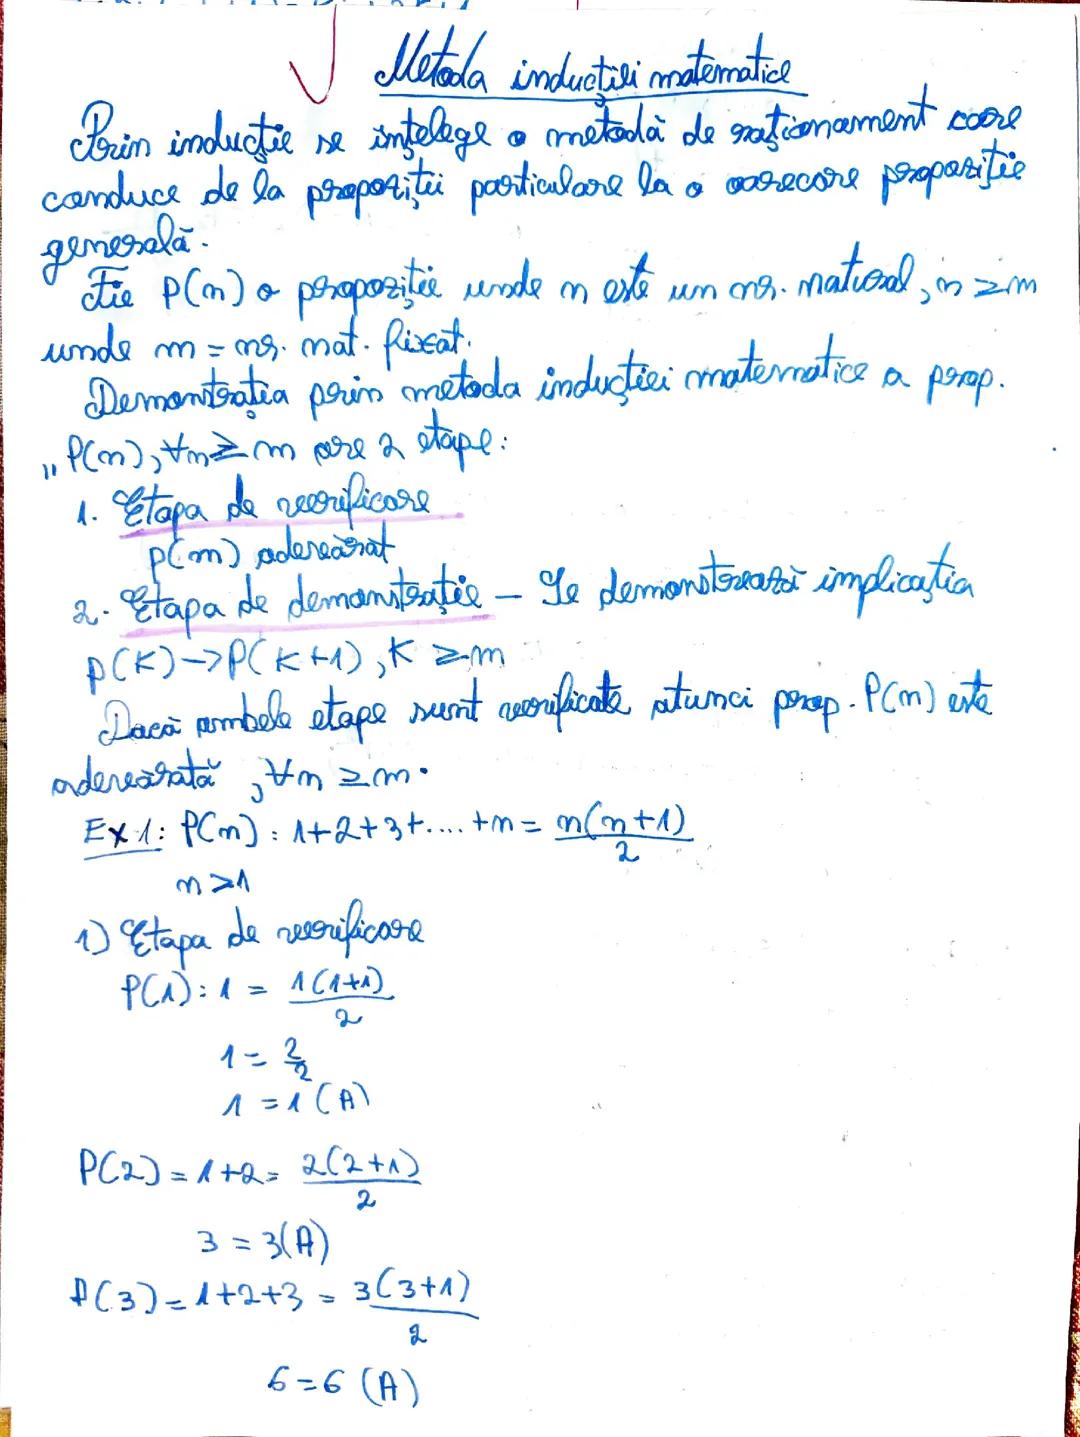 Metoda inducției matematice
Prin inducție se înțelege o metodă de raționament care
conduce de la propoziții particulare la o oarecare propoziție
generală.
Fie P(n) o propoziție unde n este un nr. natural, n ≥ m
unde m = nr. nat. fixat.
Demonstrația prin metoda inducției matematice a prop.
„P(n), ∀n ≥ m are 2 etape:
1. Etapa de verificare
P(m) adevărat
2. Etapa de demonstrație – Se demonstrează implicația
P(K) -> P(K+1), K ≥ m
Dacă ambele etape sunt verificate atunci prop. P(n) este
adevărată, ∀n ≥ m.
Ex 1: P(n): 1+2+3+....+n = n(n+1)/2
n ≥ 1
1) Etapa de verificare
P(1): 1 = 1(1+1)/2
1 = 2/2
1 = 1 (A)
P(2) = 1+2 = 2(2+1)/2
3 = 3(A)
P(3) = 1+2+3 = 3(3+1)/2
6 = 6 (A)